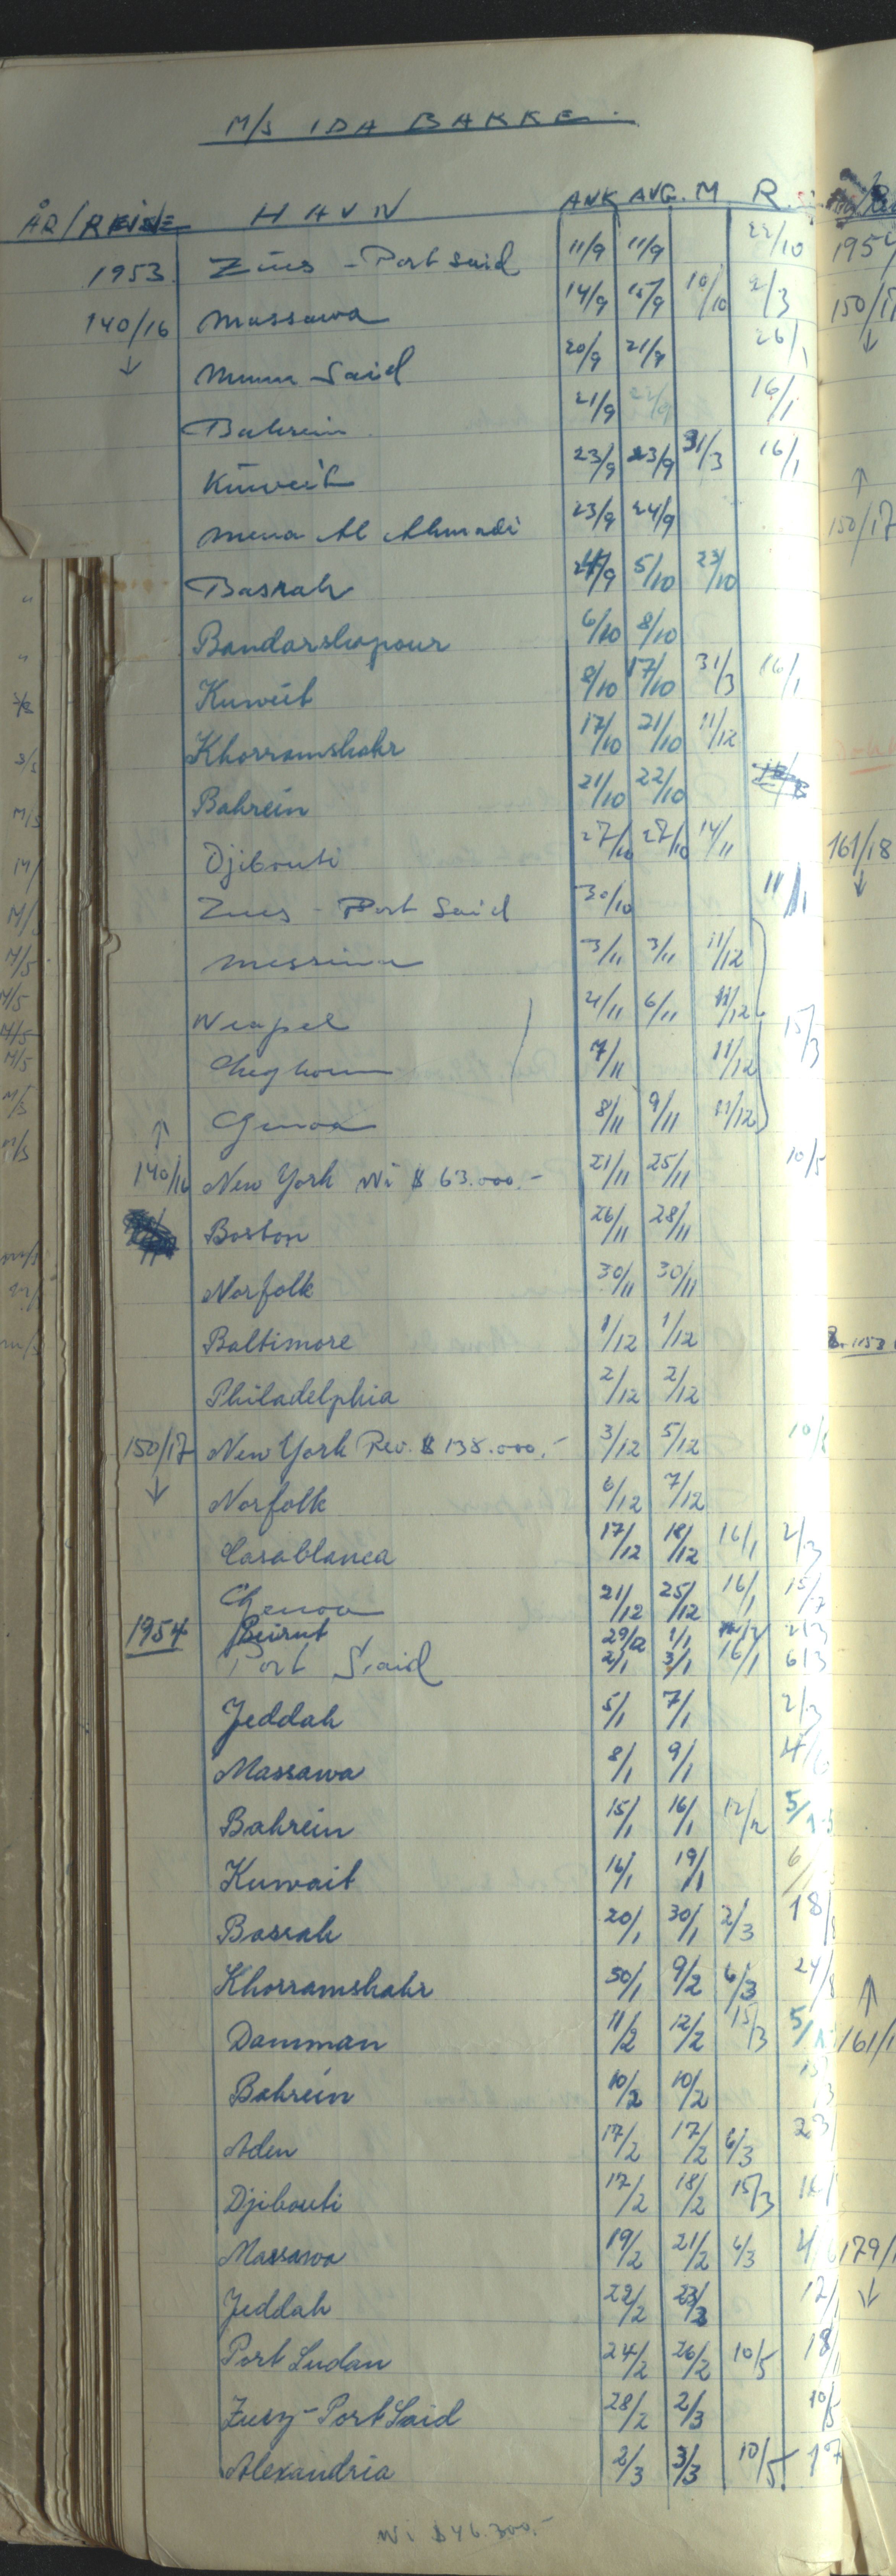 M/S IDA BAKKE.
ÅR/REISE HAVN ANK AVG. M R.
1953 Zues - Port Said 11/9 11/9 22/10
140/16 Massawa 14/9 15/9 10/10 2/3
↓ Umm Said 20/9 21/9 26/1
Bahrein 21/9 22/9 16/1
Kuweit 23/9 23/9 31/3 16/1
Mena Al Ahmadi 23/9 24/9
Basrah 24/9 5/10 23/10
Bandarshapour 6/10 8/10
Kuweit 8/10 17/10 31/3 16/1
Khorramshahr 17/10 21/10 11/12
Bahrein 21/10 22/10
Djibouti 27/10 27/10 14/11
Zues - Port Said 30/10 11/1
Messina 3/11 3/11 11/12
Neapel 4/11 6/11 11/12 15/3
Leghorn 7/11 11/12
↑ Genoa 8/11 9/11 11/12
140/16 New York Ni $ 63.000.- 21/11 25/11 10/5
Boston 26/11 28/11
Norfolk 30/11 30/11
Baltimore 1/12 1/12
Philadelphia 2/12 2/12
150/17 New York Rev. $ 138.000.- 3/12 5/12
↓ Norfolk 6/12 7/12
Casablanca 17/12 18/12 16/1 2/3
Genoa 21/12 25/12 16/1
1954 Beirut 29/12 1/1 2/3
Port Said 2/1 3/1 16/1 6/3
Jeddah 5/1 7/1 2/3
Massawa 8/1 9/1
Bahrein 15/1 16/1 12/2
Kuwait 16/1 19/1
Basrah 20/1 30/1 2/3 18/8
Khorramshahr 30/1 9/2 6/3 24/8
Damman 11/2 12/2 15/3
Bahrein 10/2 10/2
Aden 17/2 17/2 6/3
Djibouti 17/2 18/2 15/3
Massawa 19/2 21/2 6/3
Jeddah 22/2 23/2
Port Sudan 24/2 26/2 10/5
Zuez - Port Said 28/2 2/3 10/5
Alexandria 2/3 3/3 10/5
Ni $46.300.-
1954
150/17
↓
↑
150/17
161/18
↓
↑
↓